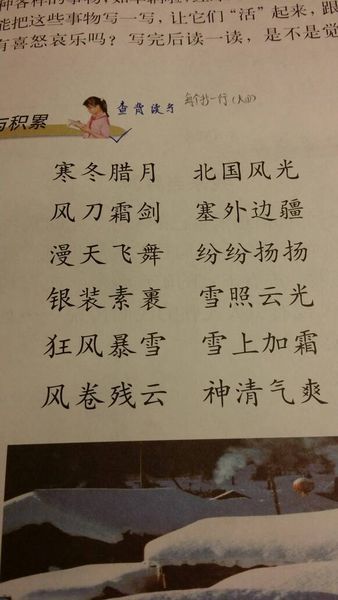 能把这些事物写一写，让它们“活”起来，跟
有喜怒哀乐吗？写完后读一读，是不是觉
与积累
寒冬腊月 北国风光
风刀霜剑 塞外边疆
漫天飞舞 纷纷扬扬
银装素裹 雪照云光
狂风暴雪 雪上加霜
风卷残云 神清气爽